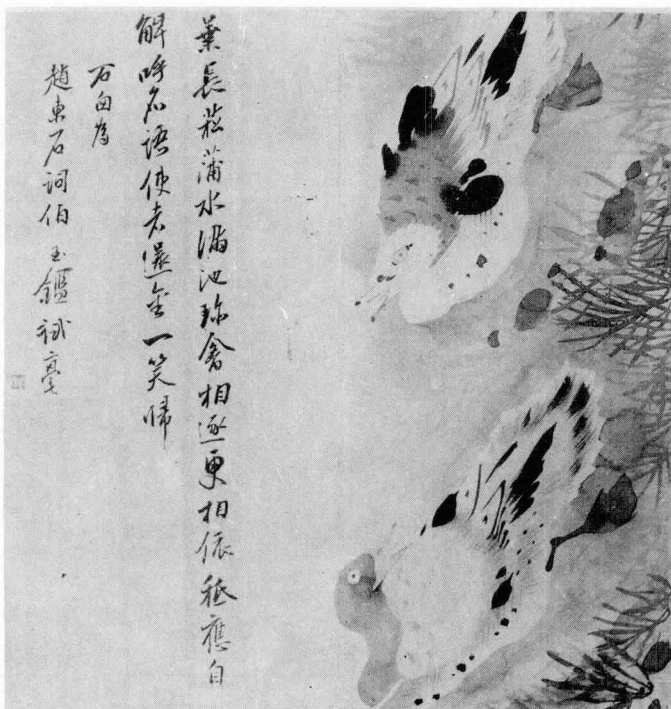 葉長菰蒲水滿池珎禽相逐更相依秪應自
解呼名語使者還舍一笑歸
石田為
趙東石詞伯玉鑑試毫